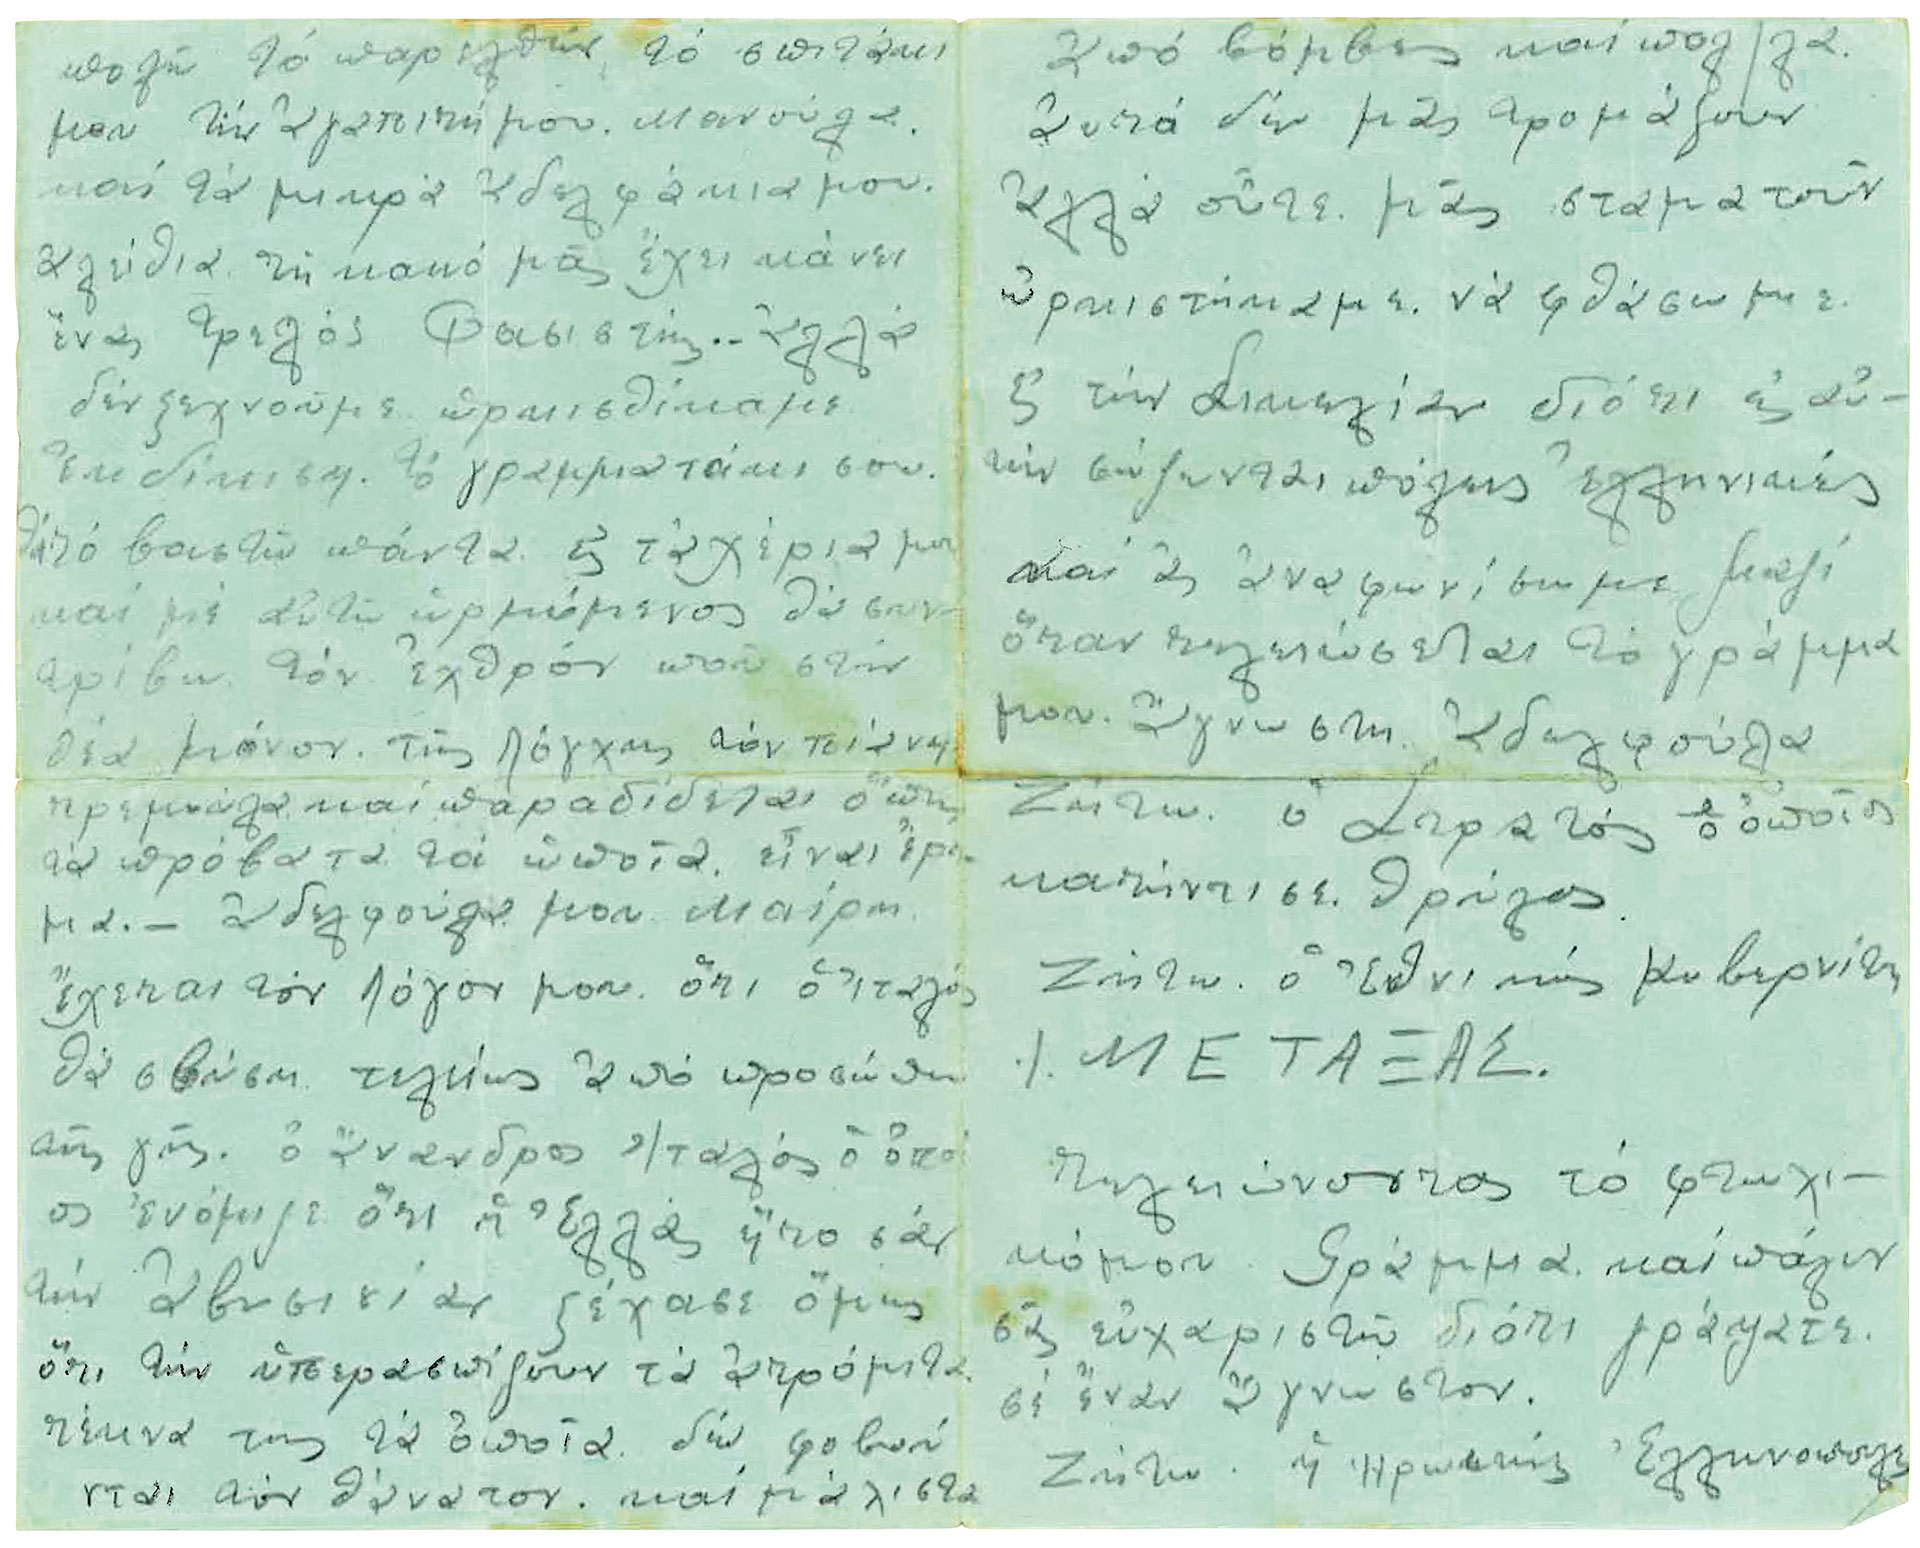 πολῆ τό παρελθών, τό σπιτάκι
μου τήν ἀγαπιτή μου. Μανούλα.
καί τά μικρά ἀδελφάκια μου.
ἀλείθια τή κακό μᾶς ἔχει κάνει
ἕνας τρελός Φασιστής.. ἀλλά
δέν ξεχνοῦμε ὡρκισθίκαμε
Ἐκδίκιση. τό γραμματάκι σου.
θά τό βαστῶ πάντα εἰς τά χέρια μου
καί μέ αὐτῶ ὡρμώμενος θά συν-
τρίβω. τόν ἐχθρόν ποῦ στήν
θέα μόνον. τῆς λόγχης τόν πιάνη
τρεμούλα καί παραδίδεται ὅπως
τα πρόβατα τά ὡποῖα. εἶναι ἔρι-
μα.— Ἀδελφούλα μου Μαίρη.
ἔχεται τόν λόγον μου. ὅτι ὁ ἰταλός
θά σβύση τελείως ἀπό προσώπου
τῆς γῆς. ὁ ἄνανδρος Ἰταλός ὁ ὁπο
ος ἐνόμιζε ὅτι ἡ Ἑλλάς ἦτο σάν
τήν Ἀβυσινίαν ξέχασε ὅμως
ὅτι τήν ὑπερασπίζουν τά ἀτρόμιτα
τέκνα της τά ὁποῖα δέν φοβού
νται τόν θάνατον. καί μάλιστα
ἀπό βόμβες καί πολλλα.
Αὐτά δέν μᾶς τρομάζουν
Ἀλλά οὔτε μᾶς σταματοῦν
ὡρκιστήκαμε. νά φθάσωμε.
εἰς τήν Σικελίαν διότι εἰς αὐ-
τήν σώζωνται πόλεις Ἑλληνικές
καί ἄς ἀναφωνίσωμε μαζί
ὅταν τελειώσεται τό γράμμα
μου. Ἄγνωστη Ἀδελφούλα
Ζήτω. ὁ Στρατός ὁ ὁποῖος
κατήντισε. θρύλος.
Ζήτω. ὁ Ἐθνικός Κυβερνίτης
Ι. ΜΕΤΑΞΑΣ.
τελειώνοντας τό φτωχι-
κόμου Γράμμα. καί πάλιν
σᾶς εὐχαριστῶ διότι γράψατε.
σέ ἕναν ἄγνωστον.
Ζήτω. ἡ Ἡρωικής Ἑλληνοπούλες